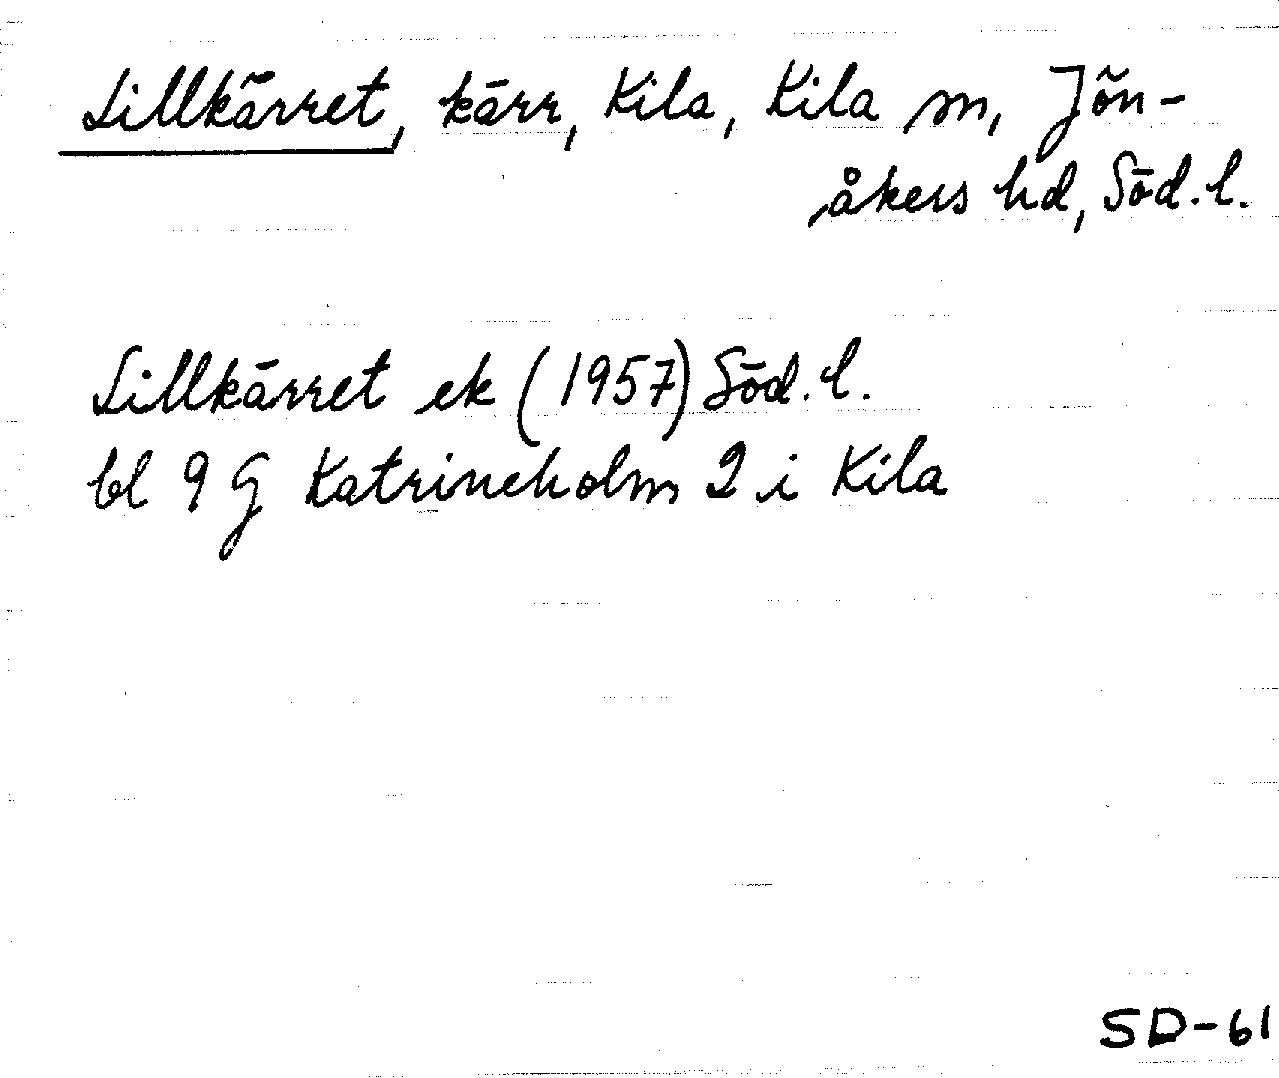 Lillkärret, kärr, Kila, Kila sn, Jön-
åkers hd, Söd.l.
Lillkärret ek (1957) Söd.l.
bl 9 G Katrineholm 2 i Kila
SD-61